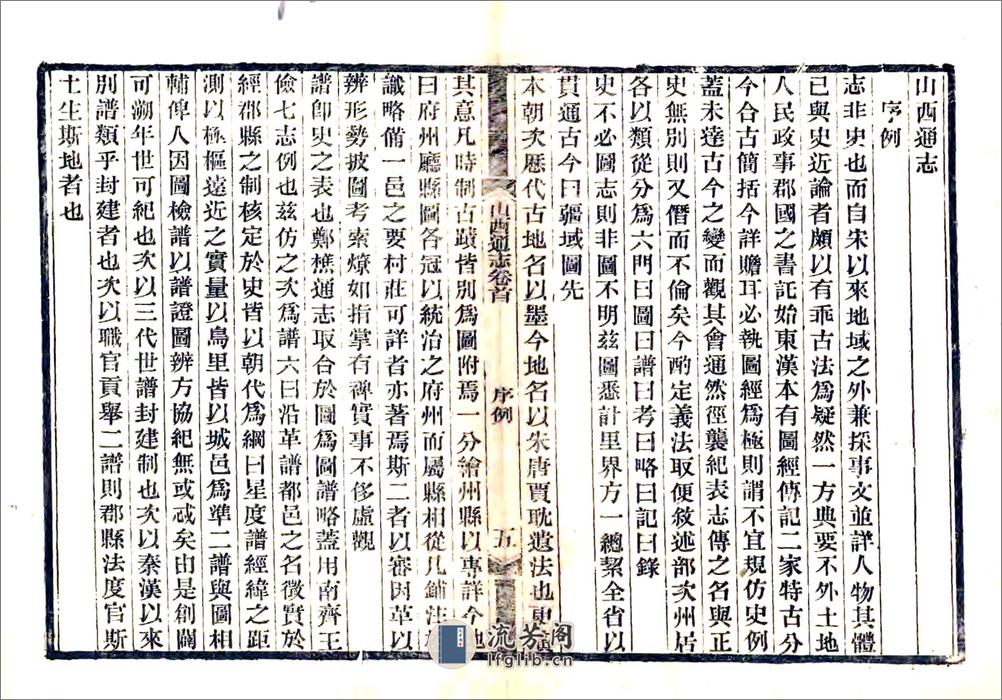 山西通志
序例
志非史也而自宋以來地域之外兼採事文並詳人物其體
已與史近論者頗以有乖古法爲疑然一方典要不外土地
人民政事郡國之書託始東漢本有圖經傳記二家特古分
今合古簡括今詳贍耳必執圖經爲極則謂不宜規仿史例
蓋未達古今之變而觀其會通然徑襲紀表志傳之名與正
史無別則又僭而不倫矣今酌定義法取便敘述部次州居
各以類從分爲六門曰圖曰譜曰考曰略曰記曰錄
史不必圖志則非圖不明茲圖悉計里界方一總挈全省以
貫通古今曰疆域圖先
本朝次歷代古地名以墨今地名以朱唐賈耽遺法也更
山西通志卷首
序例
五
其意凡時制古蹟皆別爲圖附焉一分繪州縣以專詳今地
曰府州廳縣圖各冠以統治之府州而屬縣相從凡鋪注
識略備一邑之要村莊可詳者亦著焉斯二者以審因革以
辨形勢披圖考索燎如指掌有裨實事不侈虛觀
譜卽史之表也鄭樵通志取合於圖爲圖譜略蓋用南齊王
儉七志例也茲仿之次爲譜六曰沿革譜都邑之名徵實於
經郡縣之制核定於史皆以朝代爲綱曰星度譜經緯之距
測以極樞遠近之實量以鳥里皆以城邑爲準二譜與圖相
輔俾人因圖檢譜以譜證圖辨方協紀無或忒矣由是創闢
可溯年世可紀也次以三代世譜封建制也次以秦漢以來
別譜類乎封建者也次以職官貢舉二譜則郡縣法度官斯
土生斯地者也
流芳阁
lfglib.cn